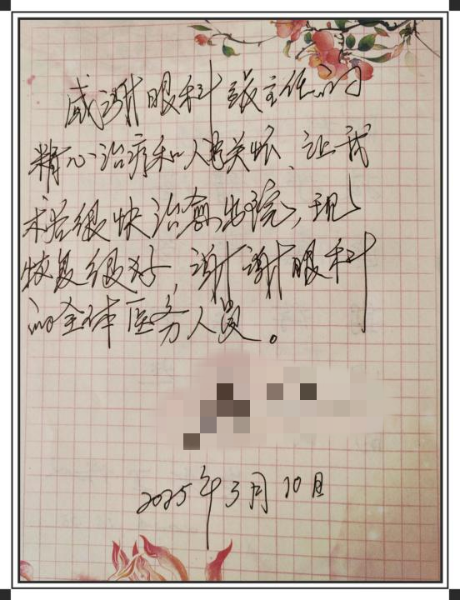 感谢眼科张主任的
精心治疗和人道关怀、让我
术后很快治愈出院,现
恢复很好,谢谢眼科
的全体医务人员。
2025年3月10日